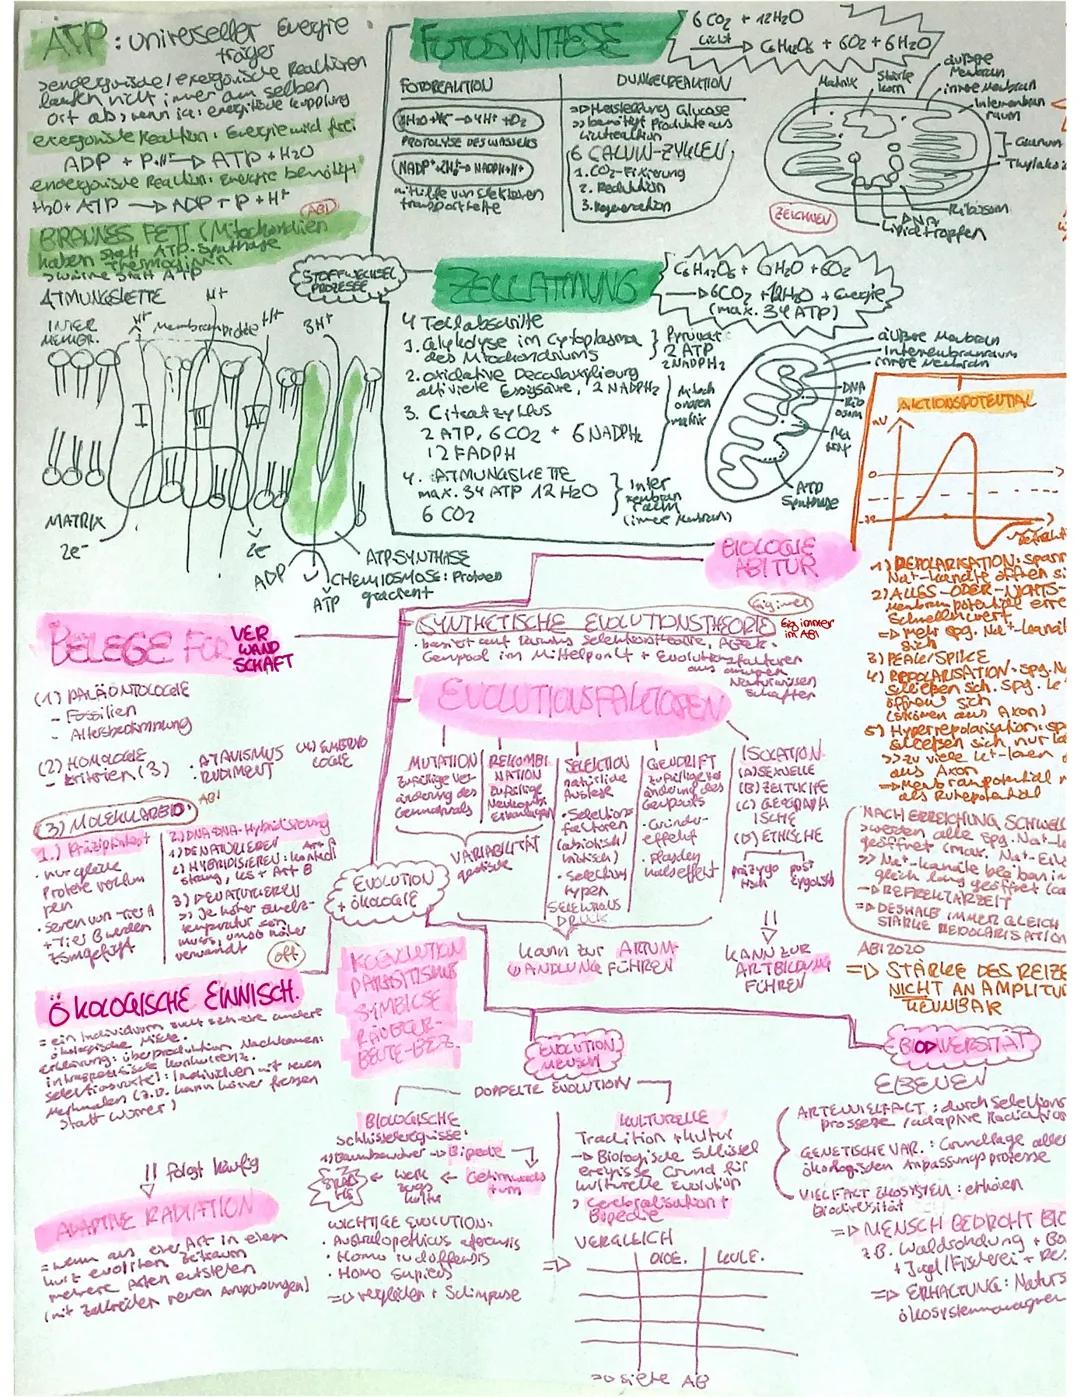 ATP: universeller Energie
träger
>endergonische/exergonische Reaktionen
laufen nicht immer am selben
Ort ab, wenn ja: energetische Kopplung
exergonische Reaktion: Energie wird frei
endergonische Reaktion: Energie benötigt
H2O + ATP → ADP + P + H+
ABI
BRAUNES FETT (Mitochondrien
haben statt ATP-Synthase
Thermogenin
> Wärme statt ATP
ATMUNGSKETTE
H+
INTER
MEMBR.
H+
Membranproteine
H+
3H+
I
III
IV
MATRIX
2e-
2e-
ADP
ATP
ATPSYNTHASE
CHEMIOSMOSE: Protonen
gradient
STOFFWECHSEL
PROZESSE
FOTOSYNTHESE
6 CO2 + 12H2O
Licht → C6H12O6 + 6O2 + 6H2O
FOTOREAKTION
PROTOLYSE DES WASSERS
mithilfe von Elektronen
transportkette
DUNKELREAKTION
=> Herstellung Glucose
>> benötigt Produkte aus
Lichtreaktion
6 CALVIN-ZYKLEN
1. CO2-Fixierung
2. Reduktion
3. Regeneration
Matrix
Stärke
korn
äußere
Membran
innere Membran
Intermembran
raum
Granum
Thylako
Ribosom
DNA
Lipidtropfen
ZEICHNEN
ZELLATMUNG
C6H12O6 + 6H2O + 6O2
→ 6CO2 + 12H2O + Energie
(max. 34 ATP)
4 Teilabschnitte
1. Glykolyse im Cytoplasma
des Mitochondriums
2. oxidative Decarboxylierung
aktivierte Essigsäure, 2 NADPH2
3. Citratzyklus
2 ATP, 6 CO2 + 6 NADPH2
12 FADPH
4. ATMUNGSKETTE
max. 34 ATP 12 H2O
6 CO2
Pyruvat
2 ATP
2 NADPH2
Mitoch
ondrien
matrix
Inter
membran
raum
(innere Membran)
äußere Membran
Intermembranraum
innere Membran
DNA
Rib
osom
Ma
trix
ATP
Synthase
BIOLOGIE
ABITUR
AKTIONSPOTENTIAL
mV
0
1) DEPOLARISATION: Spann
Na+-Kanäle öffnen si
2) ALLES-ODER-NICHTS-
Membranpotential erre
Schwellenwert
=> mehr spg. Na+-Kanäl
sich
3) PEAK/SPIKE
4) REPOLARISATION: spg. N
schließen sich. spg. K+
öffnen sich
(strömen aus Axon)
5) Hyperrepolarisation: sp
schließen sich, nur la
>> zu viele K+-Ionen d
aus Axon
=> Membranpotential n
als Ruhepotential
NACH ERREICHUNG SCHWELL
> werden alle spg. Na+-K
geöffnet (max. Na+-Ein
>> Na+-Kanäle bleiben in
gleich lang geöffnet (ca
→ REFRAKTÄRZEIT
=> DESHALB IMMER GLEICH
STARKE DEPOLARISATION
ABI 2020
=> STÄRKE DES REIZE
NICHT AN AMPLITU
ERKENNBAR
BELEGE FÜR VER
WAND
SCHAFT
(1) PALÄONTOLOGIE
- Fossilien
- Altersbestimmung
(2) HOMOLOGIE
Kriterien (3)
· ATAVISMUS
· RUDIMENT
(4) EMBRYO
LOGIE
(3) MOLEKULARBIO.
ABI
1.) Präzipitintest
· nur gleiche
Proteine verklum
pen
· Seren von Tier A
+ Tier B werden
zsmgefügt
2.) DNA-DNA-Hybridisierung
1) DENATURIEREN
2) HYBRIDISIEREN: kombi
3) DENATURIEREN
>> Je höher Schmelz-
temperatur sein
muss, umso näher
verwandt
oft
SYNTHETISCHE EVOLUTIONSTHEORIE
Eig immer
in ABI
· basiert auf Darwins Selektionstheorie,
Genpool im Mittelpunkt + Evolutionsfaktoren
aus anderen
Naturwissen
schaften
EVOLUTIONSFAKTOREN
MUTATION
zufällige Ver-
änderung des
Genmaterials
REKOMBI
NATION
zufällige
Neukombi
VARIABILITÄT
genetische
SELEKTION
natürliche
Auslese
· Selektions
faktoren
(abiotisch/
biotisch)
· Selektions
typen
SELEKTIONS
DRUCK
GENDRIFT
zufällige Ver
änderung des
Genpools
· Gründer
effekt
· Flaschen
halseffekt
ISOLATION
(A) SEXUELLE
(B) ZEITLICHE
(C) GEOGRAPH
ISCHE
(D) ETHISCHE
präzygo
tisch
post
zygotisch
kann zur ARTUM-
WANDLUNG FÜHREN
KANN ZUR
ARTBILDUNG
FÜHREN
EVOLUTION
+ ÖKOLOGIE
KOEVOLUTION
PARASITISMUS
SYMBIOSE
RÄUBER-
BEUTE-BEZ.
ÖKOLOGISCHE EINNISCH.
= ein Individuum sucht sich eine andere
ökologische Nische.
Erklärung: Überproduktion Nachkommen:
intraspezifische Konkurrenz.
Selektionsvorteil: Individuen mit neuen
Merkmalen (z.B. kann Körner fressen
statt Würmer)
folgt häufig
ADAPTIVE RADIATION
= wenn aus einer Art in einem
kurz evolutiven Zeitraum
mehrere Arten entstehen
(mit zahlreichen neuen Anpassungen)
EVOLUTION
MENSCH
DOPPELTE EVOLUTION
BIOLOGISCHE
Schlüsselereignisse:
Baumbewohner → Bipedie
Gehirnwachs
tum
← Werk
zeug
kultur
← SPRAC
HE
WICHTIGE EVOLUTION:
· Australopithicus afarensis
· Homo rudolfensis
· Homo Sapiens
=> vergleichen + Schimpanse
KULTURELLE
Tradition + Kultur
→ Biologische Schlüssel
ereignisse Grund für
kulturelle Evolution
> Cerebralisation +
Bipedie
VERGLEICH
BIOE.
KULE.
=> siehe AB
BIODIVERSITÄT
EBENEN
ARTENVIELFALT: durch Selektions
prozesse / adaptive Radiation
GENETISCHE VAR.: Grundlage aller
ökologischen Anpassungsprozesse
VIELFALT ÖKOSYSTEM: erhöhen
Biodiversität
=> MENSCH BEDROHT BIO
z.B. Waldrodung + Bo
+ Jagd/Fischerei + Pes
=> ERHALTUNG: Naturs
ökosystemmanagem